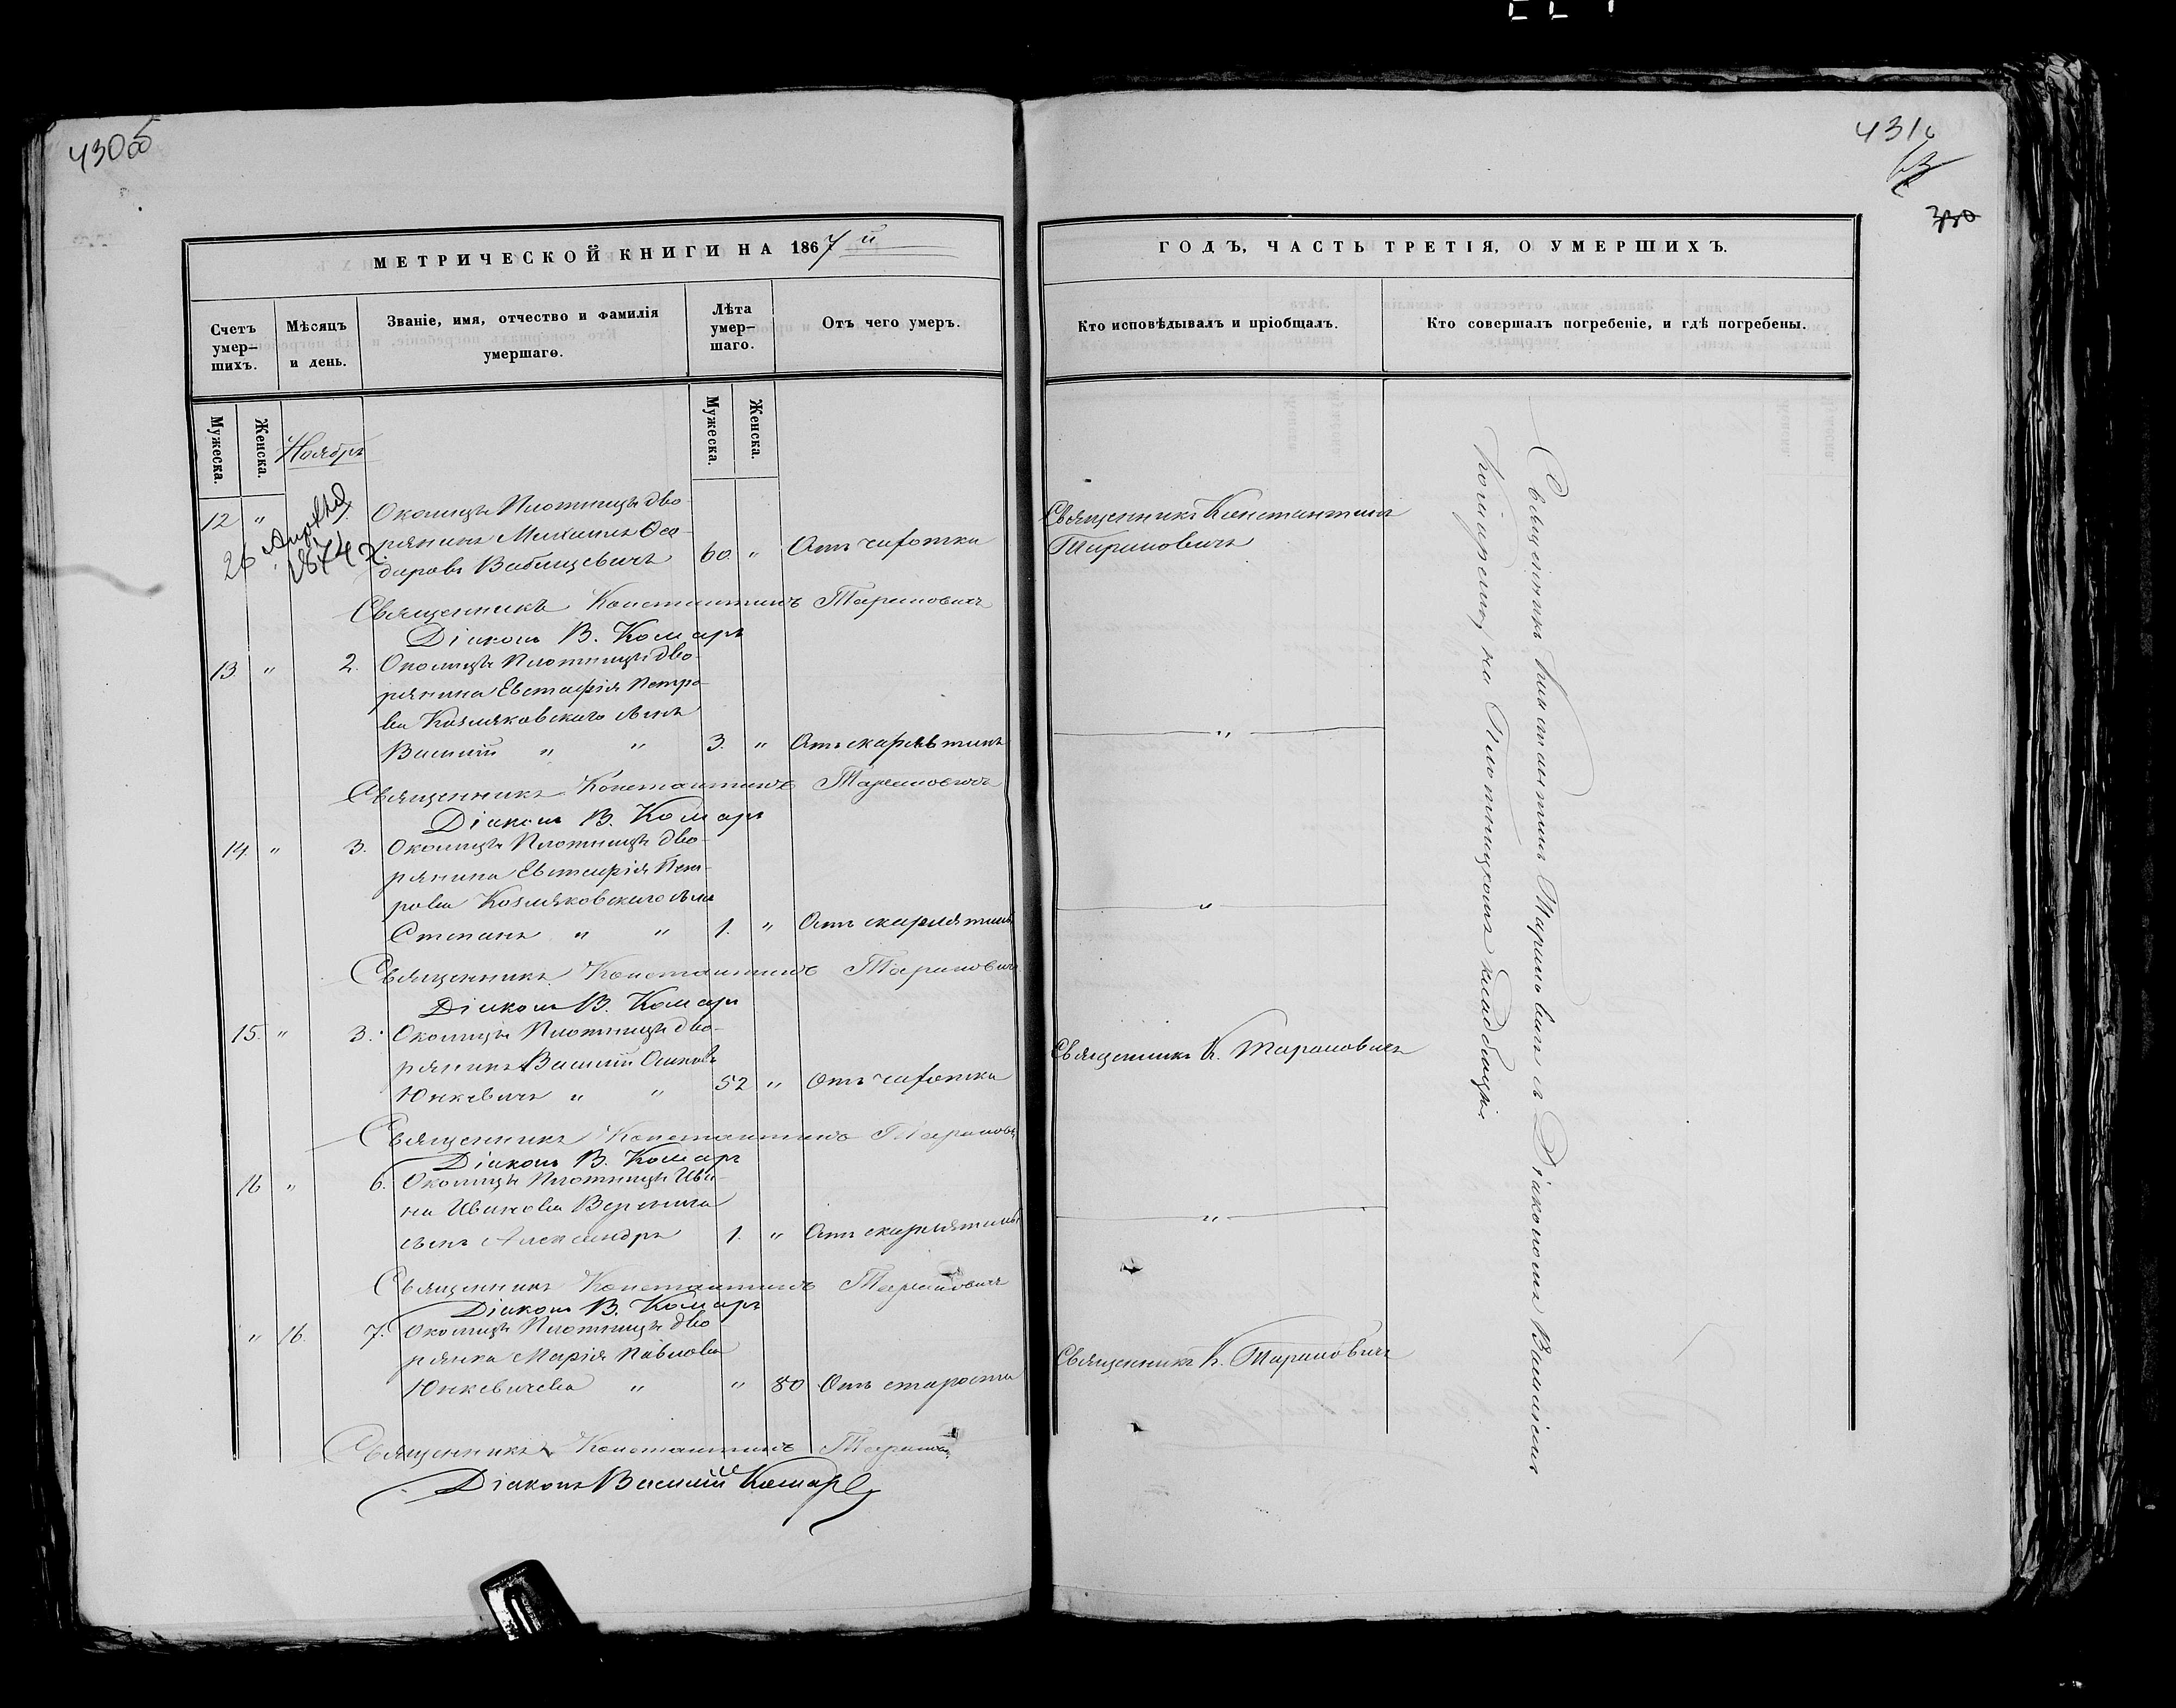 4305
МЕТРИЧЕСКОЙ КНИГИ НА 1867 й
Счетъ умер-шихъ.
Мѣсяцъ и день.
Званіе, имя, отчество и фамилія умершаго.
Лѣта умер-шаго.
Отъ чего умеръ.
Мужеска.
Женска.
Ноябрь
Мужеска.
Женска.
12 " Околицы Плотницы дво-
рянинъ Михаилъ Ѳео-
доровъ Вабищевичъ 60. " Отъ чахотки
26
1874
Священникъ Константинъ Тарановичъ
Діаконъ В. Комаръ
13 " 2. Околицы Плотницы дво-
рянина Евстафія Петро-
ва Козляковскаго сынъ
Василій " " 3. " Отъ скарлятины
Священникъ Константинъ Тарановичъ
Діаконъ В. Комаръ
14 " 3. Околицы Плотницы дво-
рянина Евстафія Пет-
рова Козляковскаго сынъ
Степанъ " " 1. " Отъ скарлятины
Священникъ Константинъ Тарановичъ
Діаконъ В. Комаръ
15. " 3. Околицы Плотницы дво-
рянинъ Василій
Юнкевичъ " " 52 " Отъ чахотки
Священникъ Константинъ Тарановичъ
Діаконъ В. Комаръ
16 " 6. Околицы Плотницы Ива-
на Иванова Веренича
сынъ Александръ 1. " Отъ скарлятины
Священникъ Константинъ Тарановичъ
Діаконъ В. Комаръ
" 16. 7. Околицы Плотницы дво-
рянка Марія Павлова
Юнкевичева " " 80 Отъ старости
Священникъ Константинъ Тарановичъ
Діаконъ Василій Комаръ
431
330
ГОДЪ, ЧАСТЬ ТРЕТІЯ, О УМЕРШИХЪ.
Кто исповѣдывалъ и пріобщалъ.
Кто совершалъ погребеніе, и гдѣ погребены.
Священникъ Константинъ
Тарановичъ
"
"
Священникъ К. Тарановичъ
"
Священникъ К. Тарановичъ
Священникъ Константинъ Тарановичъ съ Діакономъ Василіемъ
Комаремъ, на Плотницкомъ кладбищѣ.